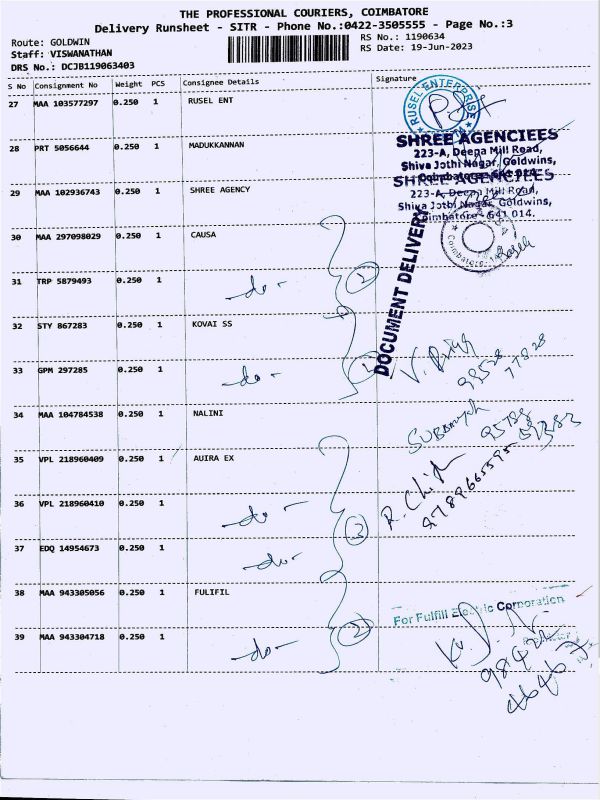 THE PROFESSIONAL COURIERS, COIMBATORE
Delivery Runsheet - SITR - Phone No.:0422-3505555 - Page No.:3
Route: GOLDWIN
Staff: VISWANATHAN
DRS No.: DCJB119063403
RS No.: 1190634
RS Date: 19-Jun-2023
S No Consignment No Weight PCS Consignee Details Signature
27 MAA 103577297 0.250 1 RUSEL ENT
RUSEL ENTERPRISE
28 PRT 5056644 0.250 1 MADUKKANNAN
SHREE AGENCIEES
223-A, Deepa Mill Road,
Shiva Jothi Nagar, Goldwins,
Coimbatore - 641 014.
29 MAA 102936743 0.250 1 SHREE AGENCY
SHREE AGENCIEES
223-A, Deepa Mill Road,
Shiva Jothi Nagar, Goldwins,
Coimbatore - 641 014.
30 MAA 297098029 0.250 1 CAUSA
DOCUMENT DELIVERY
31 TRP 5879493 0.250 1
-do- 2
32 STY 867283 0.250 1 KOVAI SS
33 GPM 297285 0.250 1
-do-
34 MAA 104784538 0.250 1 NALINI
35 VPL 218960409 0.250 1 AUIRA EX
36 VPL 218960410 0.250 1
-do- 3
37 EDQ 14954673 0.250 1
-do-
38 MAA 943305056 0.250 1 FULIFIL
For Fulfill Electric Corporation
39 MAA 943304718 0.250 1
-do- 2